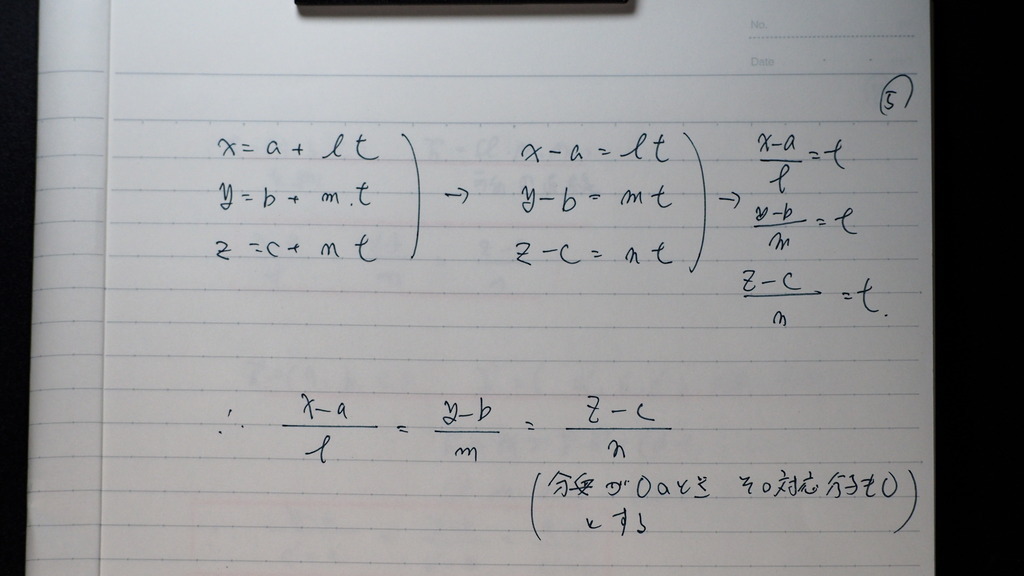 No.
Date
⑤
x = a + lt
y = b + m.t
z = c + nt
→
x-a = lt
y-b = mt
z-c = nt
→
(x-a)/l = t
(y-b)/m = t
(z-c)/n = t.
∴ (x-a)/l = (y-b)/m = (z-c)/n
(分母が0のとき その対応分子も0
とする)